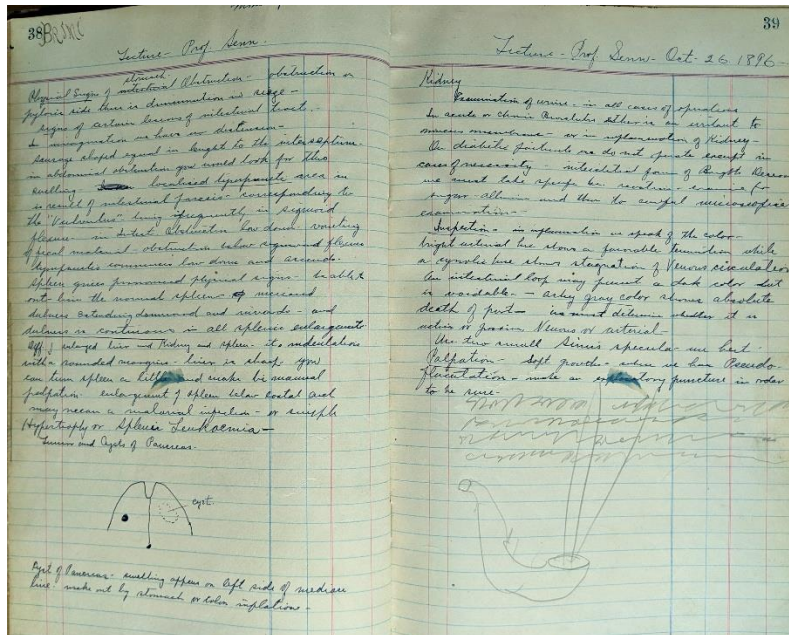 38 BRMC
Lecture - Prof Senn.
stomach
Physical Signs of intestinal Obstruction - obstruction on
pyloric side there is diminution in size -
signs of certain lesions of intestinal tract -
In invagination we have no distension -
sausage shaped equal in lenght to the intersseptum.
in abdominal obstruction you would look for this
swelling localised tympanitic area in
is result of intestinal paresis - corresponding to
the "Volvulus" being frequently in sigmoid
flexure - in Intest obstruction low down vomiting
of fecal material - obstruction below sigmoid flexure
tympanites commences low down and ascends.
Spleen gives pronounced physical signs -
out line the normal spleen of increased
dulness extending downward and inwards - and
dulness is continuous in all splenic enlargements
Diff of enlarged liver and Kidney and spleen - its indentations
with a rounded margin - liver is sharp you
can turn spleen a little and make bimanual
palpation - enlargment of spleen below costal arch
may mean a malarial infection - or simple
Hypertrophy or Splenic Leukaemia -
Tumors and Cysts of Pancreas -
cyst.
Cyst of Pancreas - swelling appears on left side of median
line - make out by stomach or colon inflation -
39
Lecture - Prof Senn - Oct - 26 1896 -
Kidney
Examination of urine - in all cases of operations
In acute or chronic Ether is an irritant to
mucous membrane - or in inflammation of Kidney -
On diabetic patients we do not operate except in
cases of necessity - interstitial form of Brights Disease
we must take specific examine for
sugar - albumin and then to careful microscopic
examination -
Inspection - in inflammation we speak of the color -
bright arterial hue shows a favorable termination while
a cyanotic hue shows stagnation of Venous circulation
An intestinal loop may present a dark color but
is voidable - ashy gray color shows absolute
death of part - we must determine whether it is
active or passive Venous or arterial -
Use two small Sinus specula -
Palpation - Soft growths - when we have Pseudo-
fluctuation - make an exploratory puncture in order
to be sure -